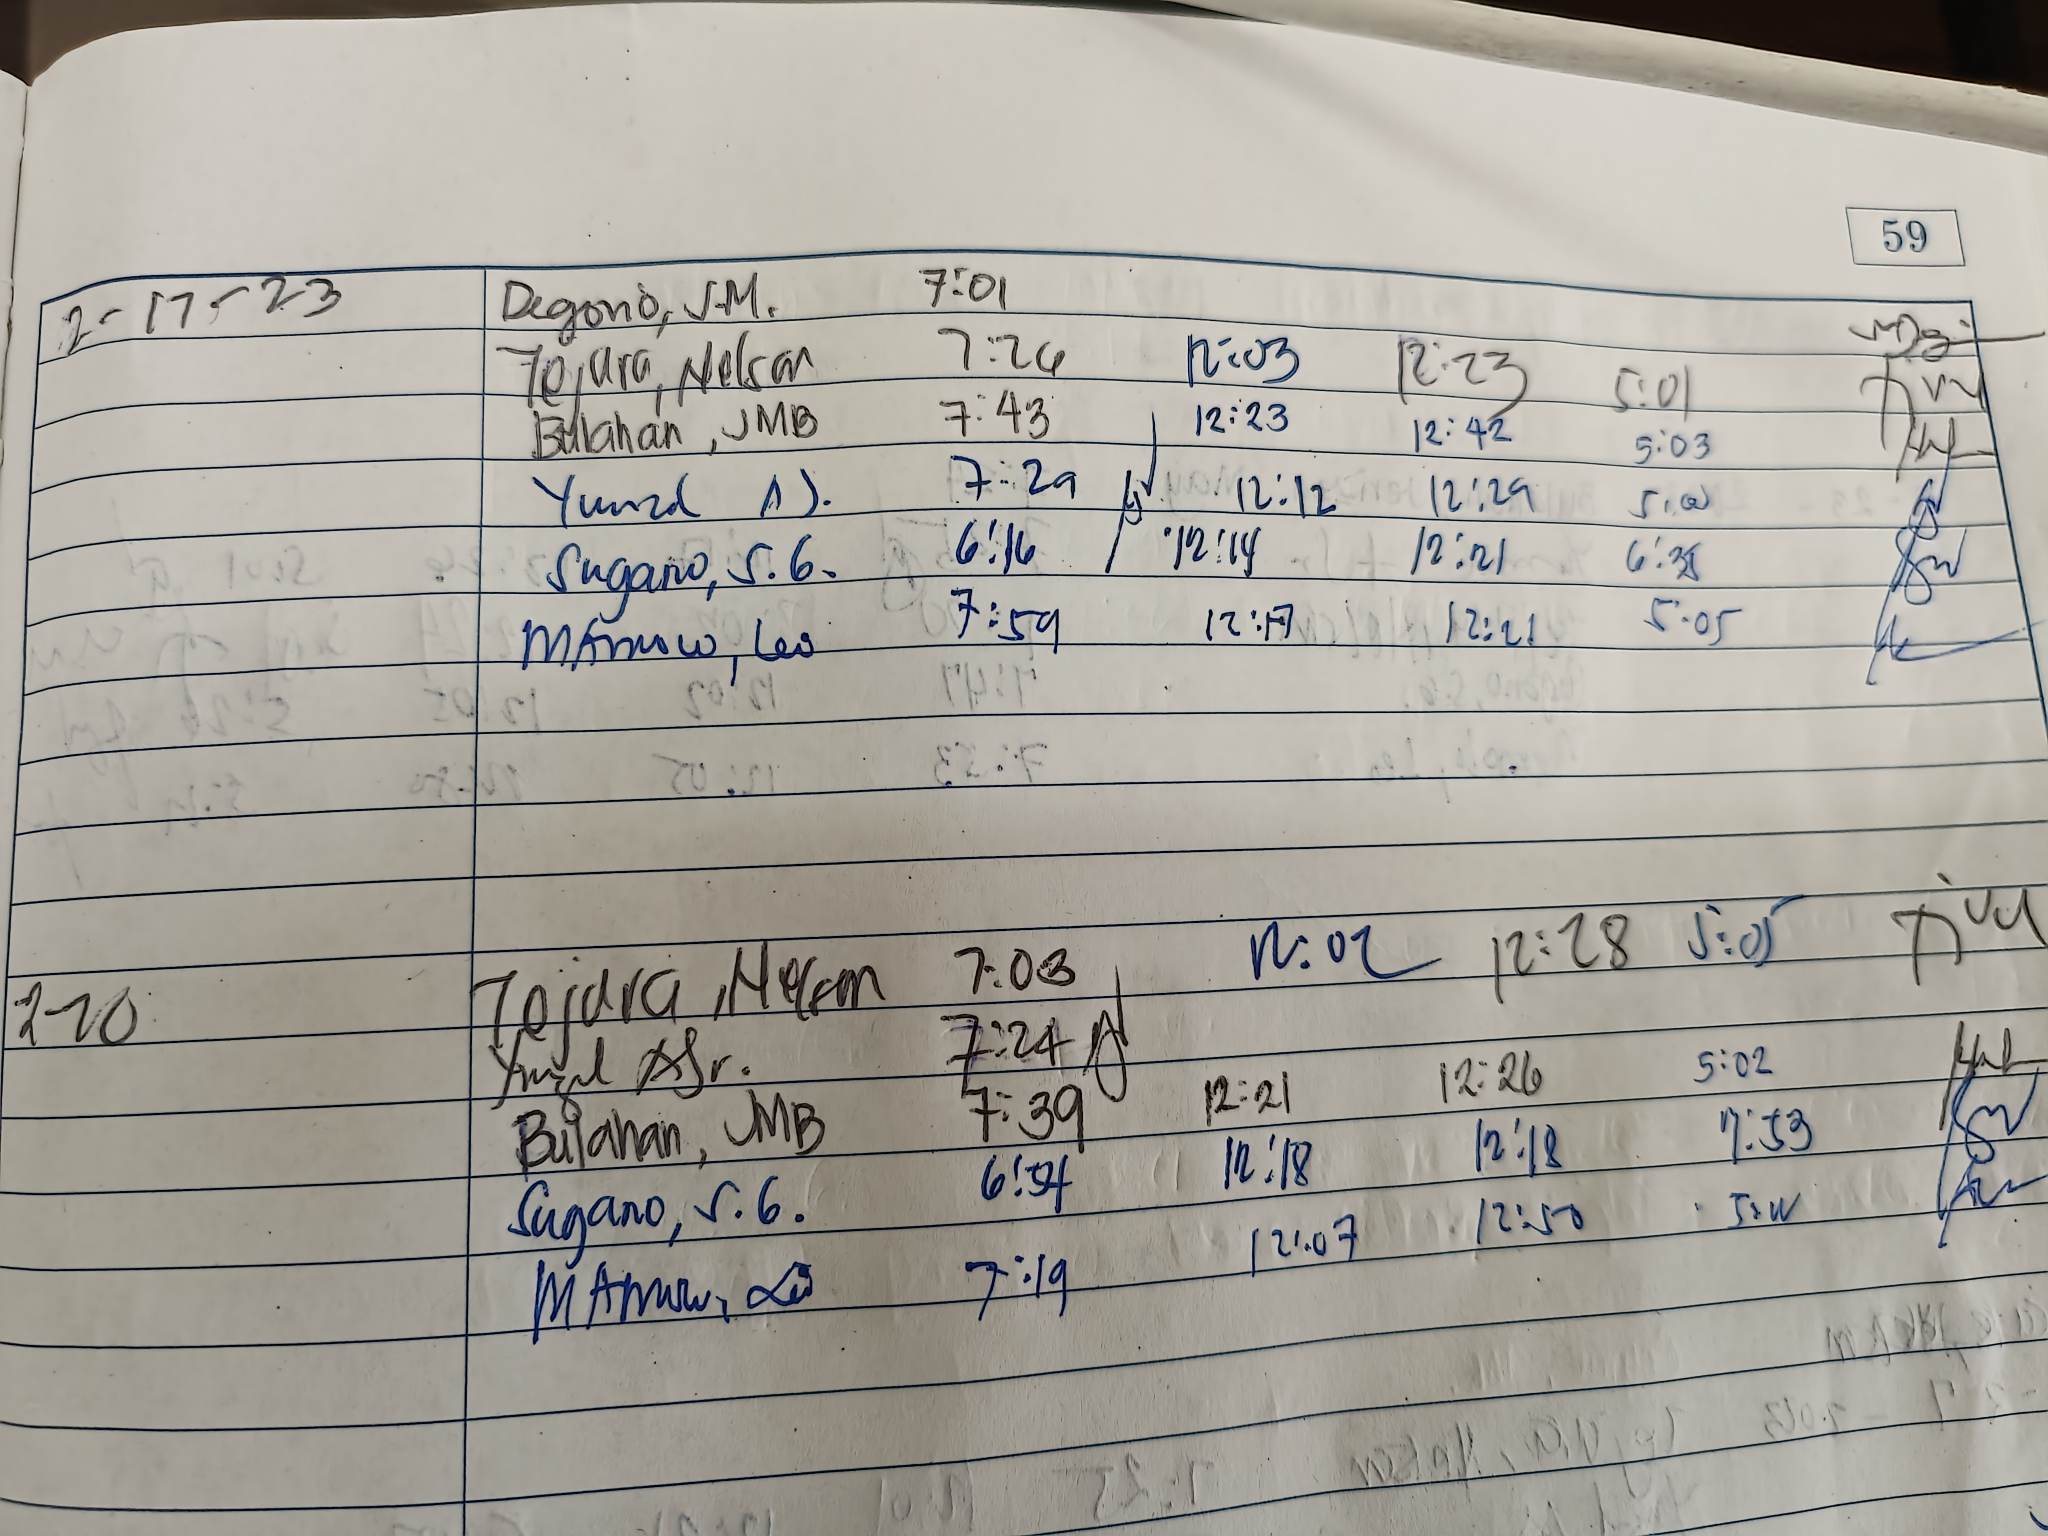 59
2-17-23 Degorio, J.M. 7:01
Tejara, Nelson 7:26 12:03 12:23 5:01
Bulahan, JMB 7:43 12:23 12:42 5:03
7:29 12:12 12:29 5:00
Sugano, S.G. 6:16 12:14 12:21 6:38
Leo 7:59 12:17 12:21 5:05
2-20 Tejara, Nelson 7:03 12:02 12:28 5:05
7:24
Bulahan, JMB 7:39 12:21 12:26 5:02
Sugano, S.G. 6:54 12:18 12:18 7:53
Leo 7:19 12:07 12:50